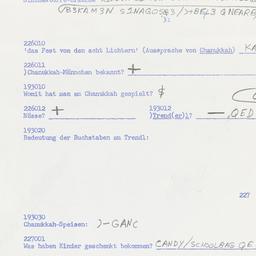 226010
'das Fest von den acht Lichtern' (Aussprache von Chanukkah)
226011
)Chanukkah-Männchen bekannt? +
193010
Womit hat man an Chanukkah gespielt?
226012 + 193012
Nüsse? )Trend(er)l? —
193020
Bedeutung der Buchstaben am Trendl:
227
193030
Chanukkah-Speisen: )-GANC
227001
Was haben Kinder geschenkt bekommen? CANDY/SCHOOLBAG